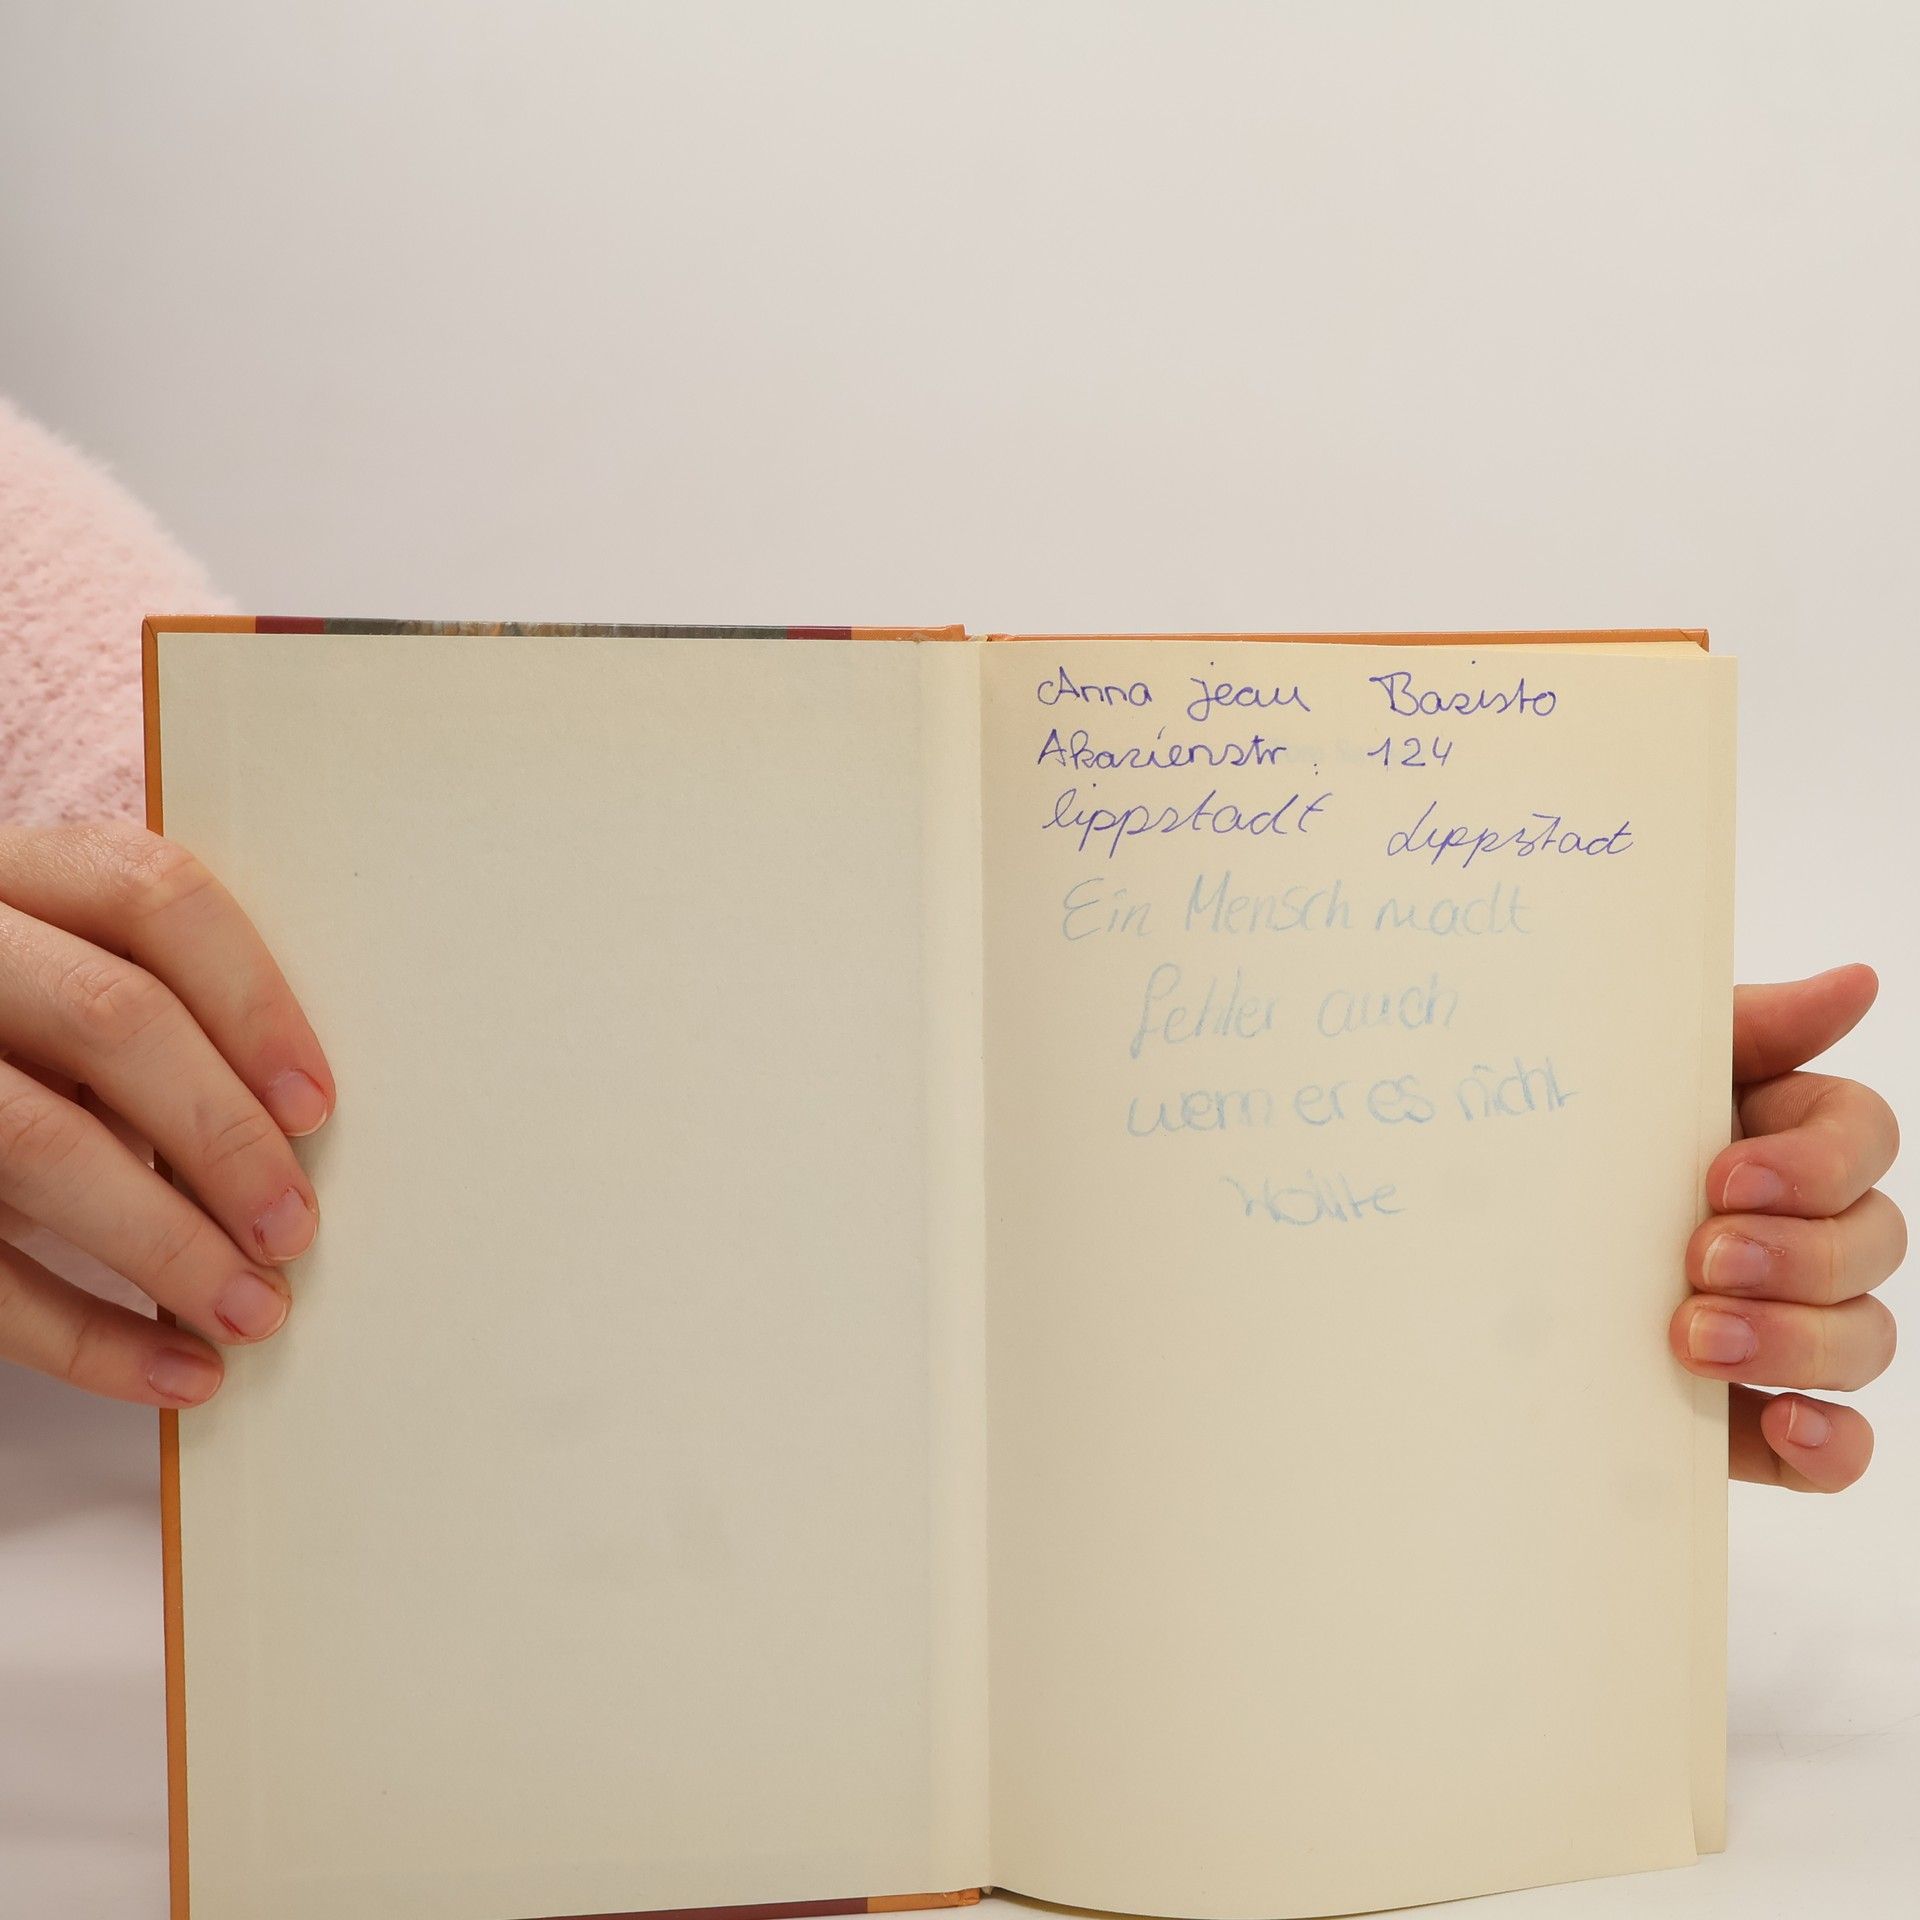 Anna jean Basisto
Akazienstr. 124
lippstadt Lippstadt
Ein Mensch macht
fehler auch
wenn er es nicht
wollte